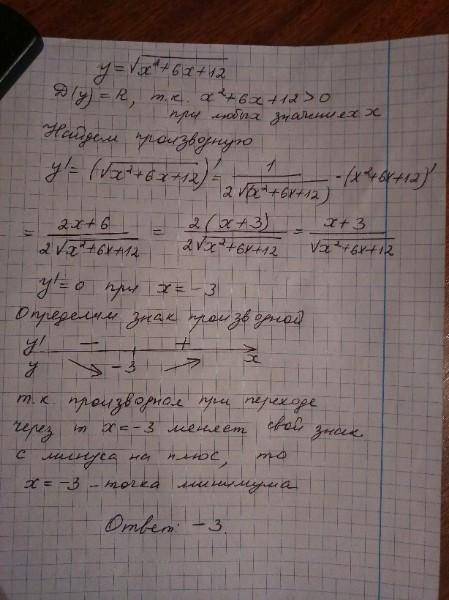 y = √(x²+6x+12)
D(y) = R, т.к. x²+6x+12>0
при любых значениях x
Найдем производную
y' = (√(x²+6x+12))' = 1/(2√(x²+6x+12)) · (x²+6x+12)'
= (2x+6)/(2√(x²+6x+12)) = 2(x+3)/(2√(x²+6x+12)) = (x+3)/√(x²+6x+12)
y'=0 при x = -3
Определим знак производной
y' - + x
y ↘ -3 ↗
т.к производная при переходе
через т x=-3 меняет свой знак
с минуса на плюс, то
x = -3 - точка минимума
Ответ: -3